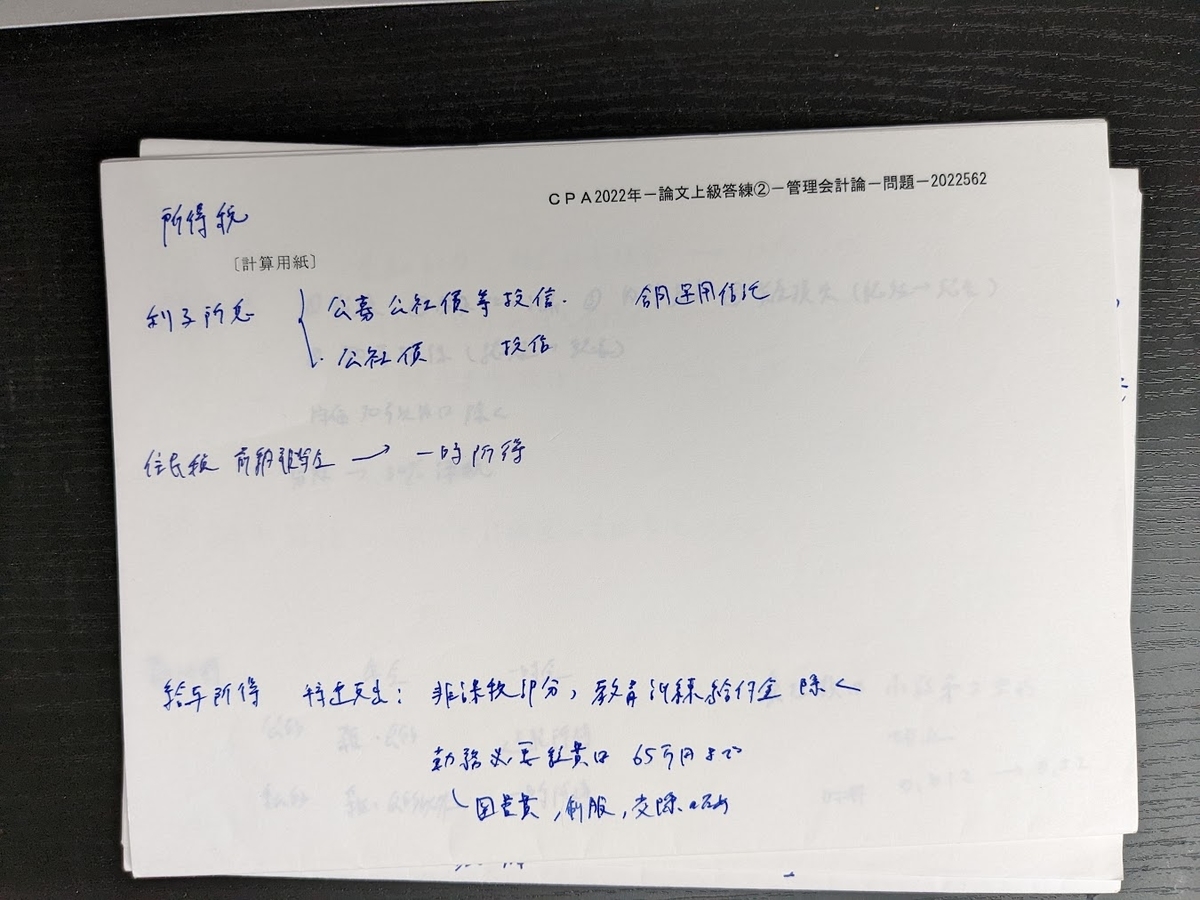 CPA2022年－論文上級答練②－管理会計論－問題－2022562
所得税
〔計算用紙〕
利子所得 公募公社債等投信. 合同運用信託
公社債 投信
住民税 前納報奨金 → 一時所得
給与所得 特定支出: 非課税部分, 教育訓練給付金 除く
勤務必要経費は 65万円まで
図書費, 制服, 交際